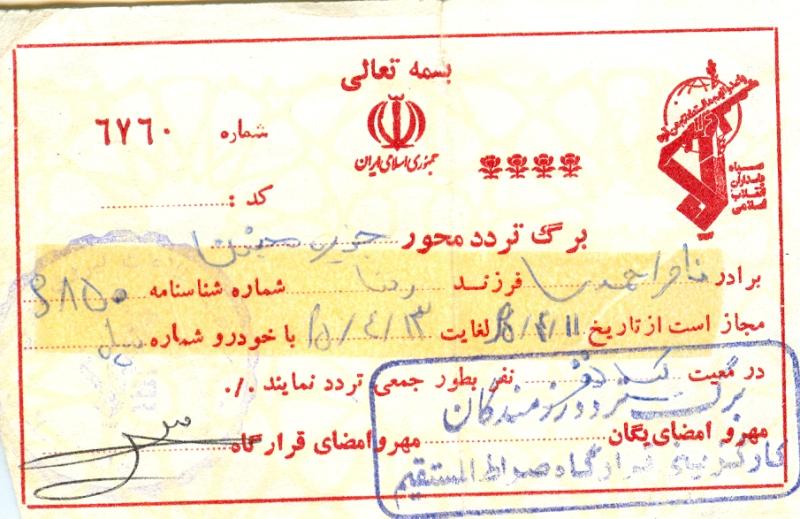 بسمه تعالی
جمهوری اسلامی ایران
شماره ۶۷۶۰
سپاه پاسداران انقلاب اسلامی
کد :
برگ تردد محور جزیره مجنون
برادر ناصر احمدی فرزند رضا شماره شناسنامه
مجاز است از تاریخ ۱۱ / ۴ / لغایت ۱۳ / ۴ / با خودرو شماره
در معیت نفر بطور جمعی تردد نمایند ./.
برگ تردد رزمندگان
مهر و امضای یگان مهر و امضای قرارگاه
قرارگاه صراط المستقیم